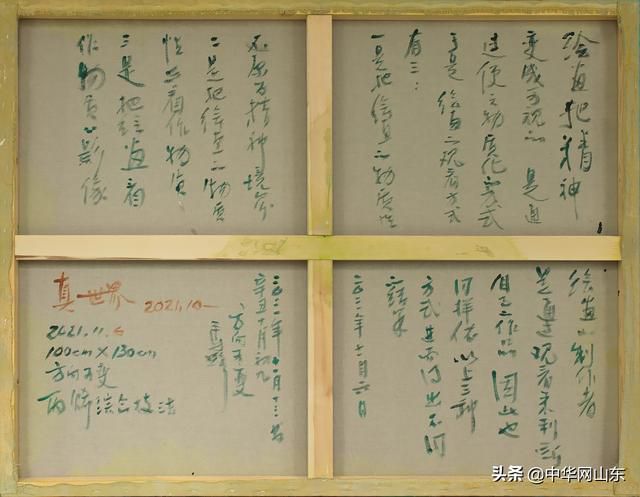 绘画把精神
变成可视的 是通
过使之物质化的方式
于是 绘画之观看方式
有三：
一是把绘画的物质性
还原为精神境界
二是把绘画的物质
性只看作物质
三是把绘画看
作物质的影像
绘画的制作者
是通过观看来判断
自己作品 因此也
同样依以上三种
方式 进而得出不同
结果
二〇二一年十一月六日
二〇二一年十一月十三
辛丑十月初九
方向可变
真世界 2021.10—
2021.11.6
100cm X 130cm
方向可变
丙烯综合技法
头条 @中华网山东